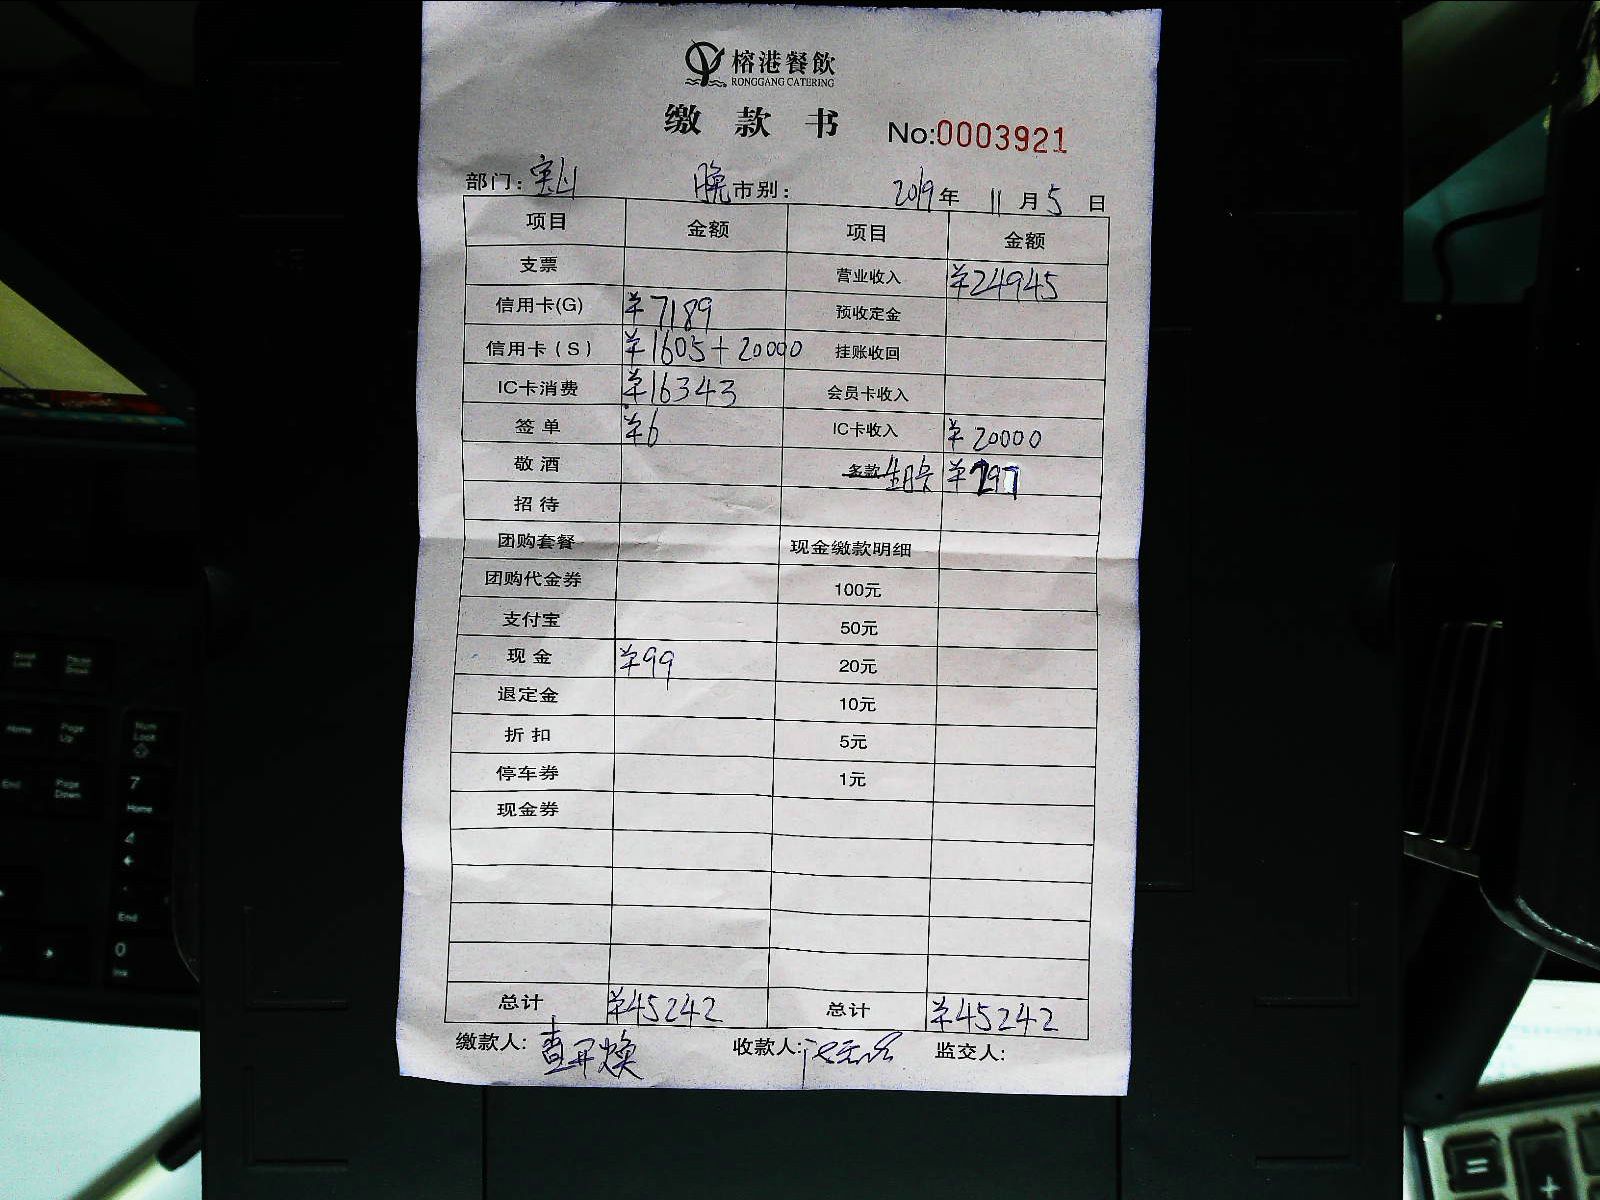 榕港餐飲
RONGGANG CATERING
缴款书 No:0003921
部门: 晚市别: 2019年 11月5日
项目 金额 项目 金额
支票 营业收入 ¥24945
信用卡(G) ¥7189 预收定金
信用卡(S) ¥1605+20000 挂账收回
IC卡消费 ¥16343 会员卡收入
签单 ¥6 IC卡收入 ¥20000
敬酒 多款 ¥297
招待
团购套餐 现金缴款明细
团购代金券 100元
支付宝 50元
现金 ¥99 20元
退定金 10元
折扣 5元
停车券 1元
现金券
总计 ¥45242 总计 ¥45242
缴款人: 收款人: 监交人:
=
+
Home
Page Up
Num Lock
End
Page Down
7
Home
4
End
0